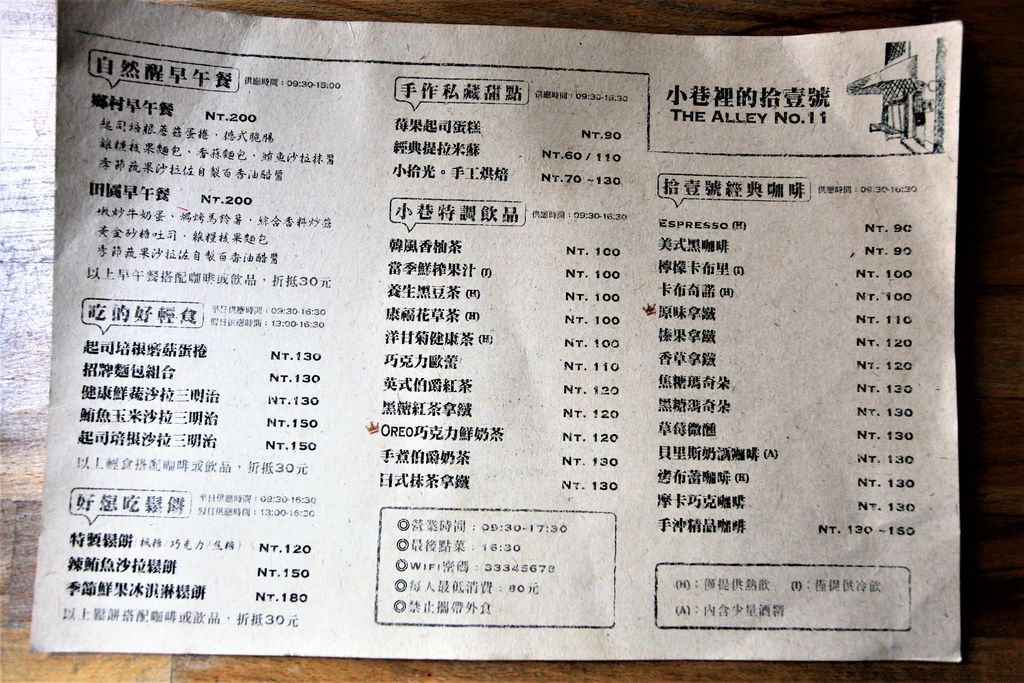 自然醒早午餐 供應時間：09:30-15:00
鄉村早午餐 NT.200
起司培根蘑菇蛋捲、德式脆腸
雜糧核果麵包、香蒜麵包、鮪魚沙拉抹醬
季節蔬果沙拉佐自製百香油醋醬
田園早午餐 NT.200
嫩炒牛奶蛋、焗烤馬鈴薯、綜合香料炒菇
黃金砂糖吐司、雜糧核果麵包
季節蔬果沙拉佐自製百香油醋醬
以上早午餐搭配咖啡或飲品，折抵30元
吃的好輕食 平日供應時間：09:30-16:30
假日供應時間：13:00-16:30
起司培根磨菇蛋捲 NT.130
招牌麵包組合 NT.130
健康鮮蔬沙拉三明治 NT.130
鮪魚玉米沙拉三明治 NT.150
起司培根沙拉三明治 NT.150
以上輕食搭配咖啡或飲品，折抵30元
好想吃鬆餅 平日供應時間：09:30-16:30
假日供應時間：13:00-16:30
特製鬆餅(楓糖/巧克力/焦糖) NT.120
辣鮪魚沙拉鬆餅 NT.150
季節鮮果冰淇淋鬆餅 NT.180
以上鬆餅搭配咖啡或飲品，折抵30元
手作私藏甜點 供應時間：09:30-16:30
莓果起司蛋糕 NT.90
經典提拉米蘇 NT.60 / 110
小拾光。手工烘焙 NT.70 ~130
小巷特調飲品 供應時間：09:30-16:30
韓風香柚茶 NT. 100
當季鮮榨果汁 (I) NT. 100
養生黑豆茶 (H) NT. 100
康福花草茶 (H) NT. 100
洋甘菊健康茶 (H) NT. 100
巧克力歐蕾 NT. 110
英式伯爵紅茶 NT. 120
黑糖紅茶拿鐵 NT. 120
OREO巧克力鮮奶茶 NT. 120
手煮伯爵奶茶 NT. 130
日式抹茶拿鐵 NT. 130
◎營業時間：09:30-17:30
◎最後點菜：16:30
◎WIFI密碼：33345678
◎每人最低消費：80元
◎禁止攜帶外食
小巷裡的拾壹號
THE ALLEY NO.11
拾壹號經典咖啡 供應時間：09:30-16:30
ESPRESSO (H) NT. 90
美式黑咖啡 NT. 90
檸檬卡布里 (I) NT. 100
卡布奇諾 (H) NT. 100
原味拿鐵 NT. 110
榛果拿鐵 NT. 120
香草拿鐵 NT. 120
焦糖瑪奇朵 NT. 130
黑糖瑪奇朵 NT. 130
草莓微醺 NT. 130
貝里斯奶酒咖啡 (A) NT. 130
烤布蕾咖啡 (H) NT. 130
摩卡巧克咖啡 NT. 130
手沖精品咖啡 NT. 130 ~150
(H)：僅提供熱飲 (I)：僅提供冷飲
(A)：內含少量酒精